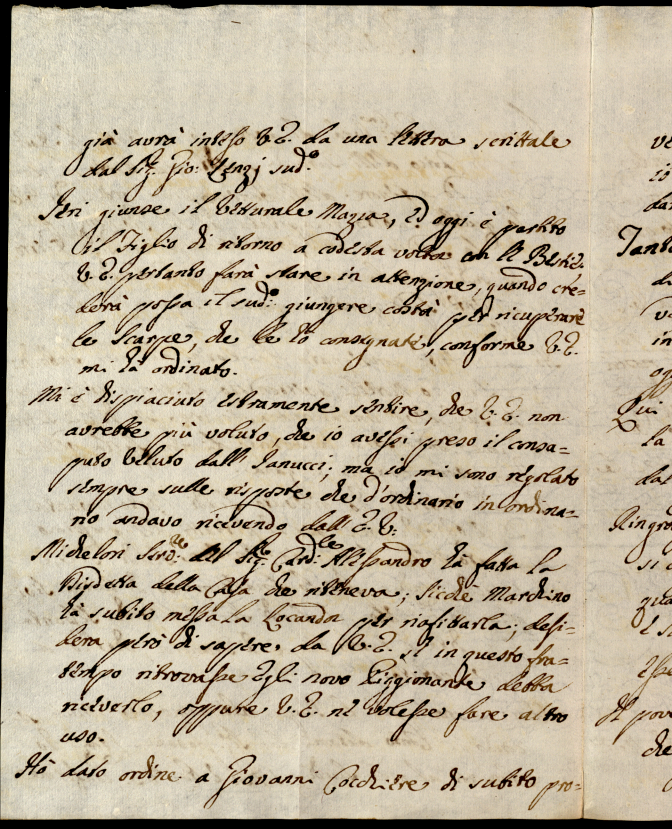 già avrà inteso V.E. da una lettera scrittale
dal Sig.e Gio: Renzj sud.o
Jeri giunse il Vetturale Mazza, ed oggi è partito
il Figlio di ritorno a codesta volta con le Bestie.
V.E. pertanto farà stare in attenzione, quando cre=
derà possa il sud.o giungere costà per ricuperare
le scarpe, che le hò consegnate, conforme V.E.
mi hà ordinato.
Mi è dispiaciuto estramente sentire, che V.E. non
avrebbe più voluto, che io avessi preso il consa=
puto Veluto dall' Janucci; ma io mi sono regolato
sempre sulle risposte che d'ordinario in ordina=
rio andavo ricevendo dall' E.V.
Michelori Serd.e del Sig.e Card.le Alessandro hà fatta la
Disdetta della Casa che riteneva; sicchè Marchino
hà subito messa la Locanda per riaffittarla; desi=
dera però di sapere da V.E. se in questo fra=
tempo ritrovasse Egli novo Piggionante debba
riceverlo, oppure V.E. ne volesse fare altro
uso.
Hò dato ordine a Giovanni Cocchiere di subito pro=
ve
io
da
Tant
da
ve
in
og
Qui
la
dal
Ringra
si
qua
e s
Il pov
che